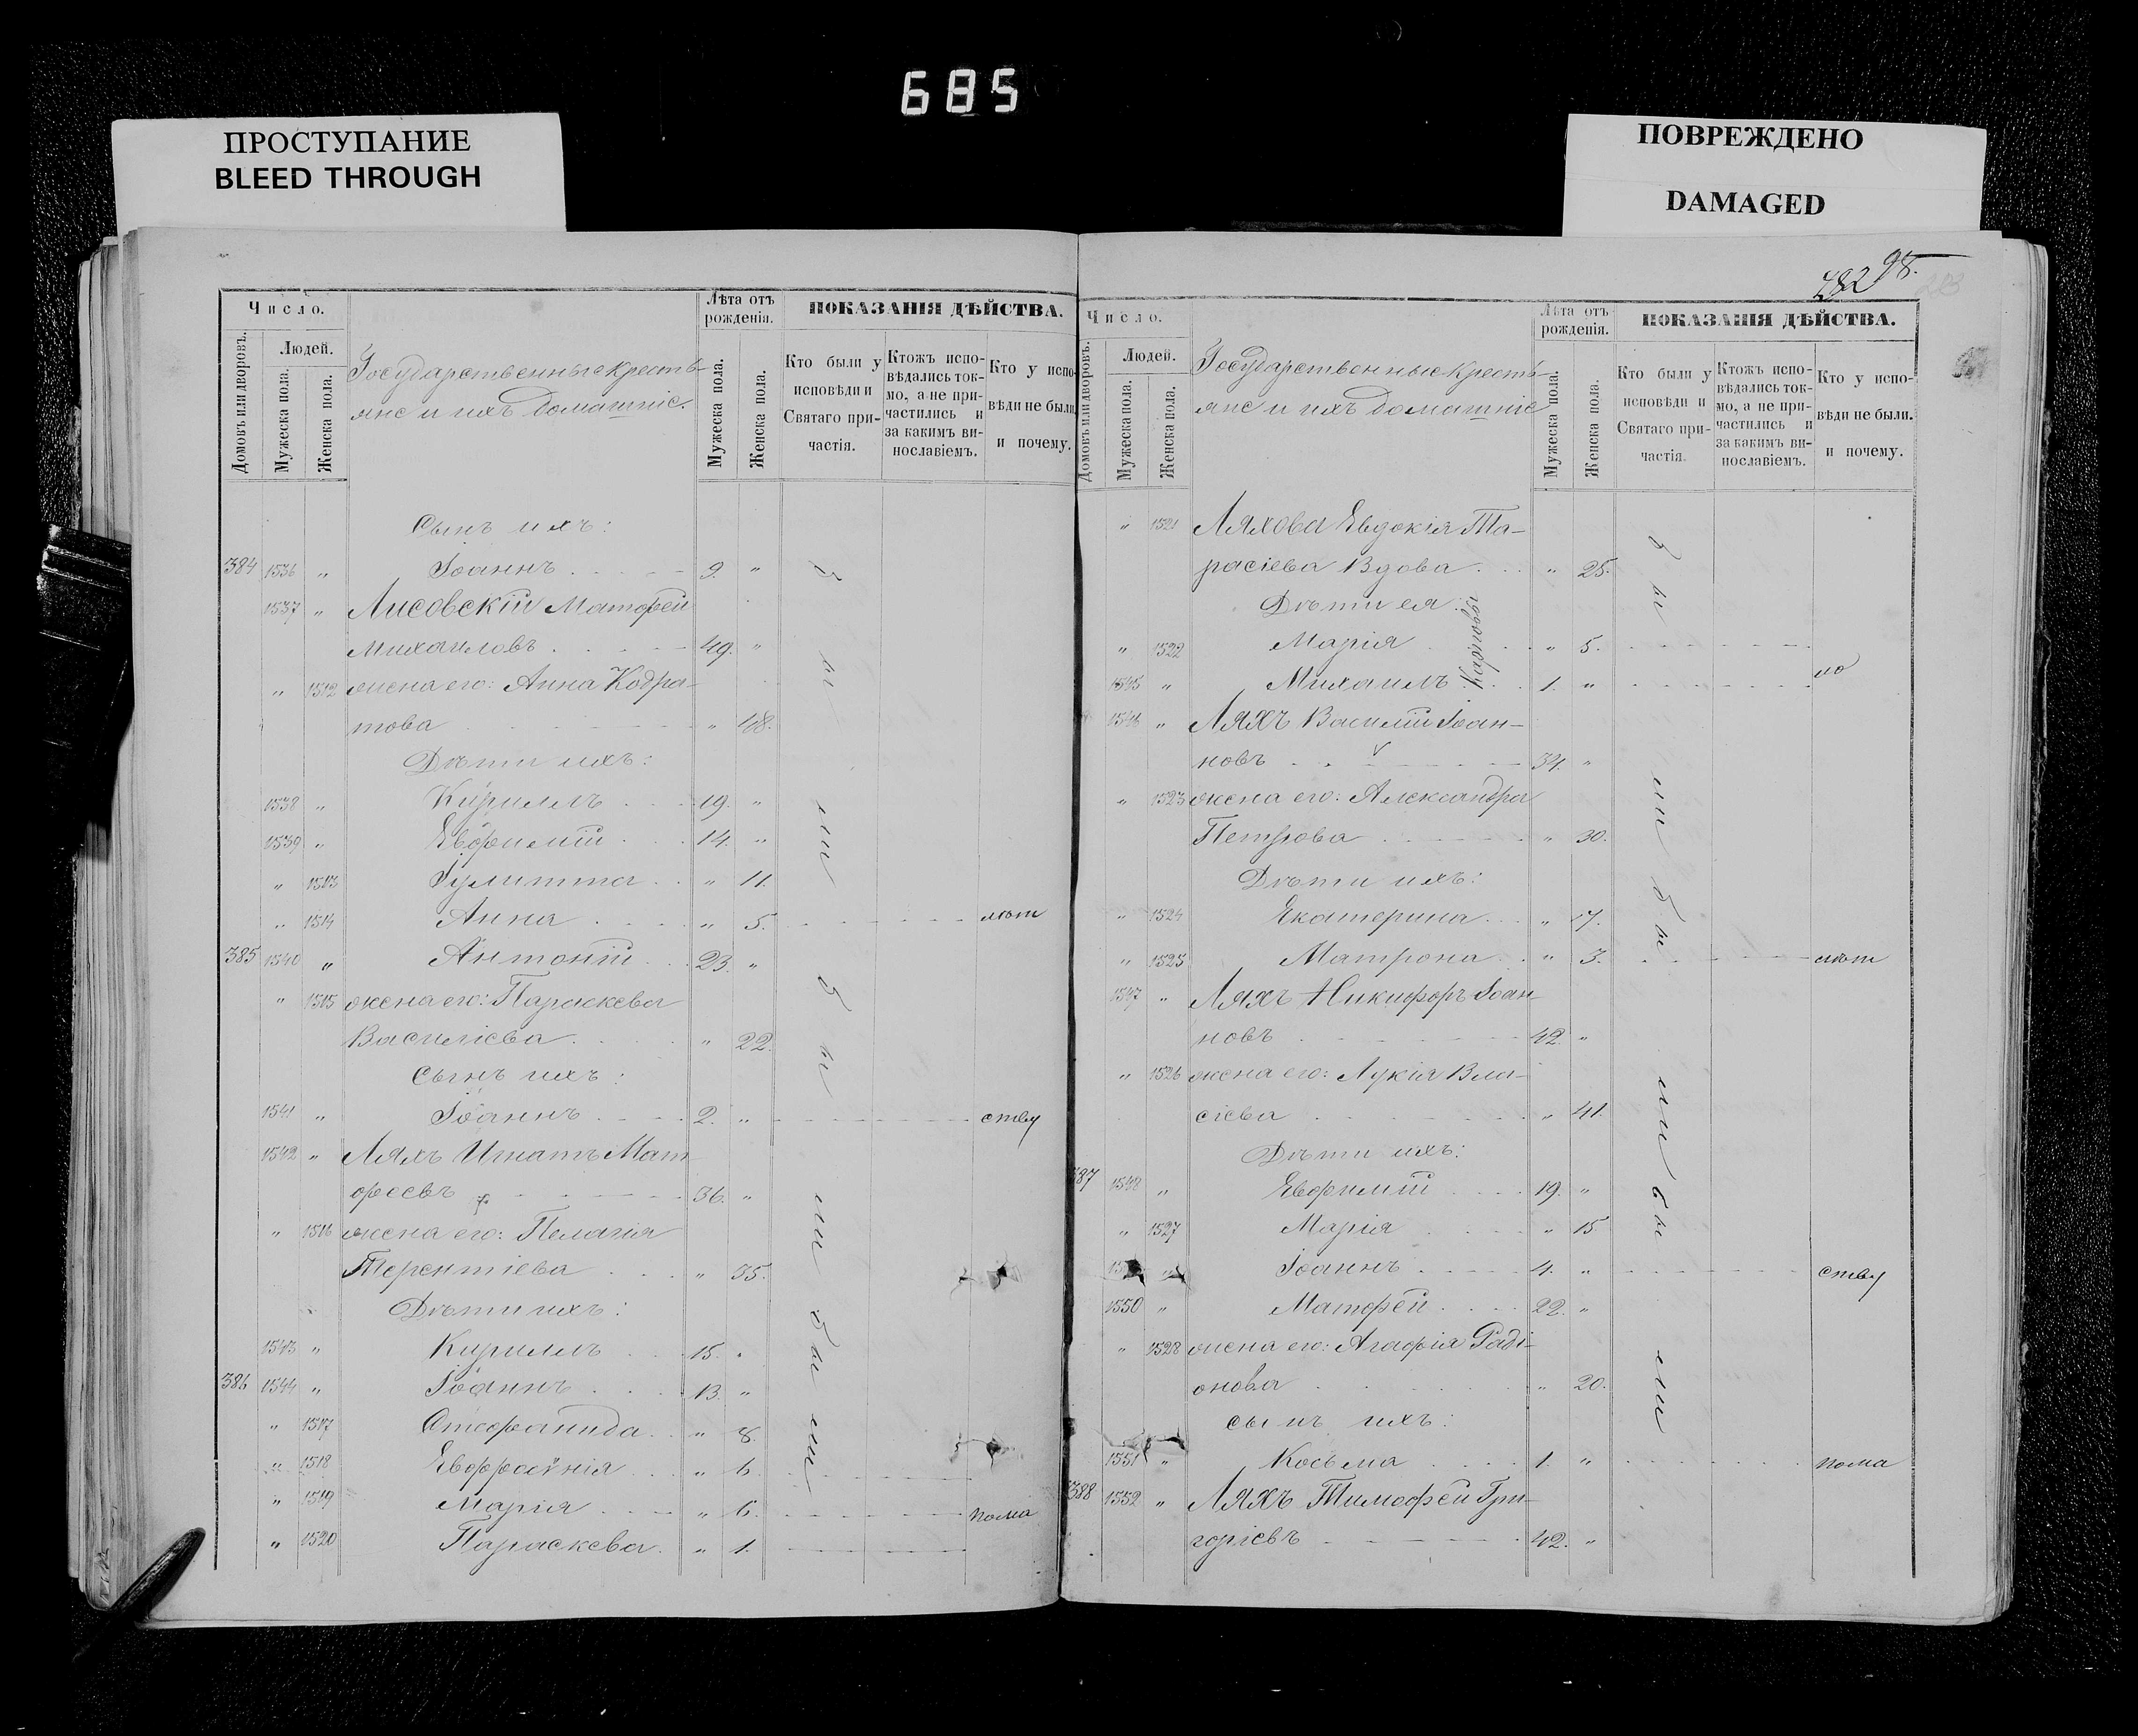 685
ПРОСТУПАНИЕ
BLEED THROUGH
ПОВРЕЖДЕНО
DAMAGED
Число.
Домовъ или дворовъ.
Людей.
Мужеска пола.
Женска пола.
Государственные крестъ-
яне и ихъ домашніе.
Лѣта отъ
рожденія.
Мужеска пола.
Женска пола.
ПОКАЗАНІЯ ДѢЙСТВА.
Кто были у
исповѣди и
Святаго при-
частія.
Ктожъ испо-
вѣдались ток-
мо, а не при-
частились и
за какимъ ви-
нославіемъ.
Кто у испо-
вѣди не были.
и почему.
Сынъ ихъ:
384 1536 " Іоаннъ 9. "
1537 " Лисовскій Матѳей
Михаиловъ 49. "
" 1512 жена его: Анна Кодра-
това " 48.
Дѣти ихъ:
1538 " Кириллъ 19. "
1539 " Евфимій 14. "
" 1513 Іулитта " 11.
" 1514 Анна " 5. лѣт
385 1540 " Антоній 23. "
" 1515 жена его: Параскева
Василіева " 22.
Сынъ ихъ:
1541 " Іоаннъ 2. " ству
1542 " Ляхъ Игнатъ Мат
ѳеевъ 36. "
" 1516 жена его: Пелагія
Терентіева " 35.
Дѣти ихъ:
1543 " Кириллъ 15. "
386 1544 " Іоаннъ 13. "
" 1517 Стефанида " 8.
" 1518 Евфросинія " 6.
" 1519 Марія " 6. пома
" 1520 Параскева " 1.
были были
482 98.
Число.
Домовъ или дворовъ.
Людей.
Мужеска пола.
Женска пола.
Государственные кресть-
яне и ихъ домашніе
Лѣта отъ
рожденія.
Мужеска пола.
Женска пола.
ПОКАЗАНІЯ ДѢЙСТВА.
Кто были у
исповѣди и
Святаго при-
частія.
Ктожъ испо-
вѣдались ток-
мо, а не при-
частились и
за какимъ ви-
нославіемъ.
Кто у испо-
вѣди не были.
и почему.
" 1521 Ляхова Евдокія Та-
расіева Вдова " 25.
Дѣти ея:
" 1522 Марія " 5.
1545 " Михаилъ 1. " ло
Карповы
1546 " Ляхъ Василій Іоан-
новъ 34. "
" 1523 жена его: Александра
Петрова " 30.
Дѣти ихъ:
" 1524 Екатерина " 7.
" 1525 Матрона " 3. лѣт
1547 " Ляхъ Никифоръ Іоан-
новъ 42. "
" 1526 жена его: Лукія Вла-
сіева " 41.
Дѣти ихъ:
387 1548 " Евфимій 19. "
" 1527 Марія " 15
" Іоаннъ 4. " ству
1550 " Матѳей 22. "
" 1528 жена его: Агафія Раді-
онова " 20.
сынъ ихъ:
1551 " Косьма 1. " пома
388 1552 " Ляхъ Тимоѳей Гри-
горіевъ 42. "
были были